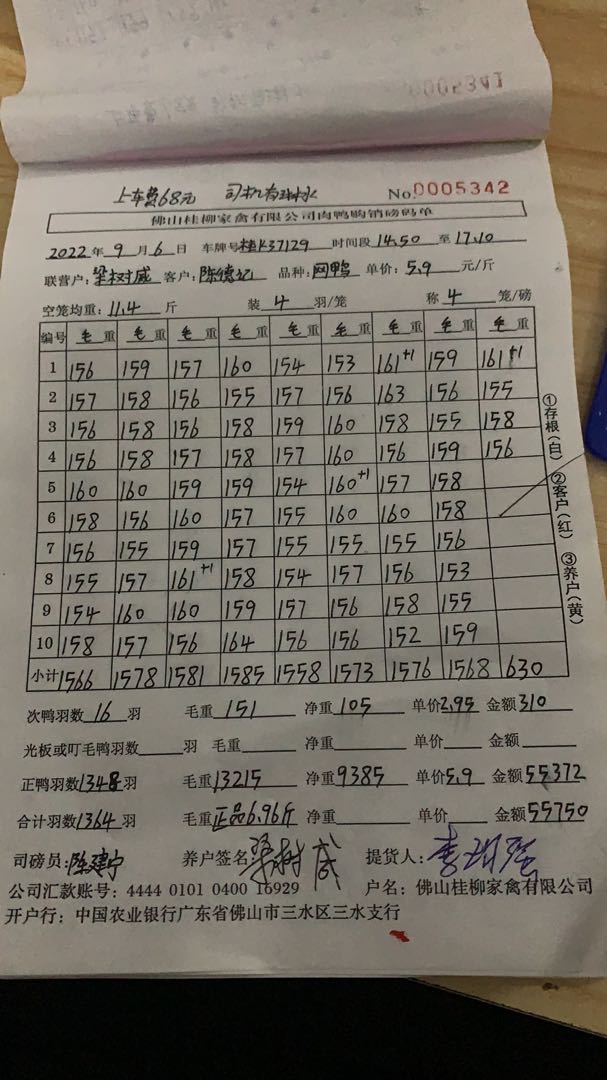 0005341
上车费68元 司机有淋水 No.0005342
佛山桂柳家禽有限公司肉鸭购销磅码单
2022年9月6日 车牌号桂K37129 时间段14.50至17.10
联营户:梁树威 客户:陈德记 品种:网鸭 单价:5.9元/斤
空笼均重:11.4斤 装4羽/笼 称4笼/磅
编号 毛重 毛重 毛重 毛重 毛重 毛重 毛重 毛重 毛重
1 156 159 157 160 154 153 161+1 159 161+1
2 157 158 156 155 157 156 163 156 155
3 156 158 156 158 159 160 158 155 158
4 156 158 157 158 157 160 156 159 156
5 160 160 159 159 154 160+1 157 158
6 158 156 160 157 155 160 160 158
7 156 155 159 157 155 155 155 156
8 155 157 161+1 158 154 157 156 153
9 154 160 160 159 157 156 158 155
10 158 157 156 164 156 156 152 159
小计 1566 1578 1581 1585 1558 1573 1576 1568 630
次鸭羽数16羽 毛重151 净重105 单价2.95 金额310
光板或叮毛鸭羽数 羽 毛重 净重 单价 金额
正鸭羽数1348羽 毛重13215 净重9385 单价5.9 金额55372
合计羽数1364羽 毛重正品6.96斤 净重 单价 金额55750
司磅员:陈建宁 养户签名:梁树威 提货人:
公司汇款账号:4444 0101 0400 16929 户名:佛山桂柳家禽有限公司
开户行:中国农业银行广东省佛山市三水区三水支行
①存根(白) ②客户(红) ③养户(黄)